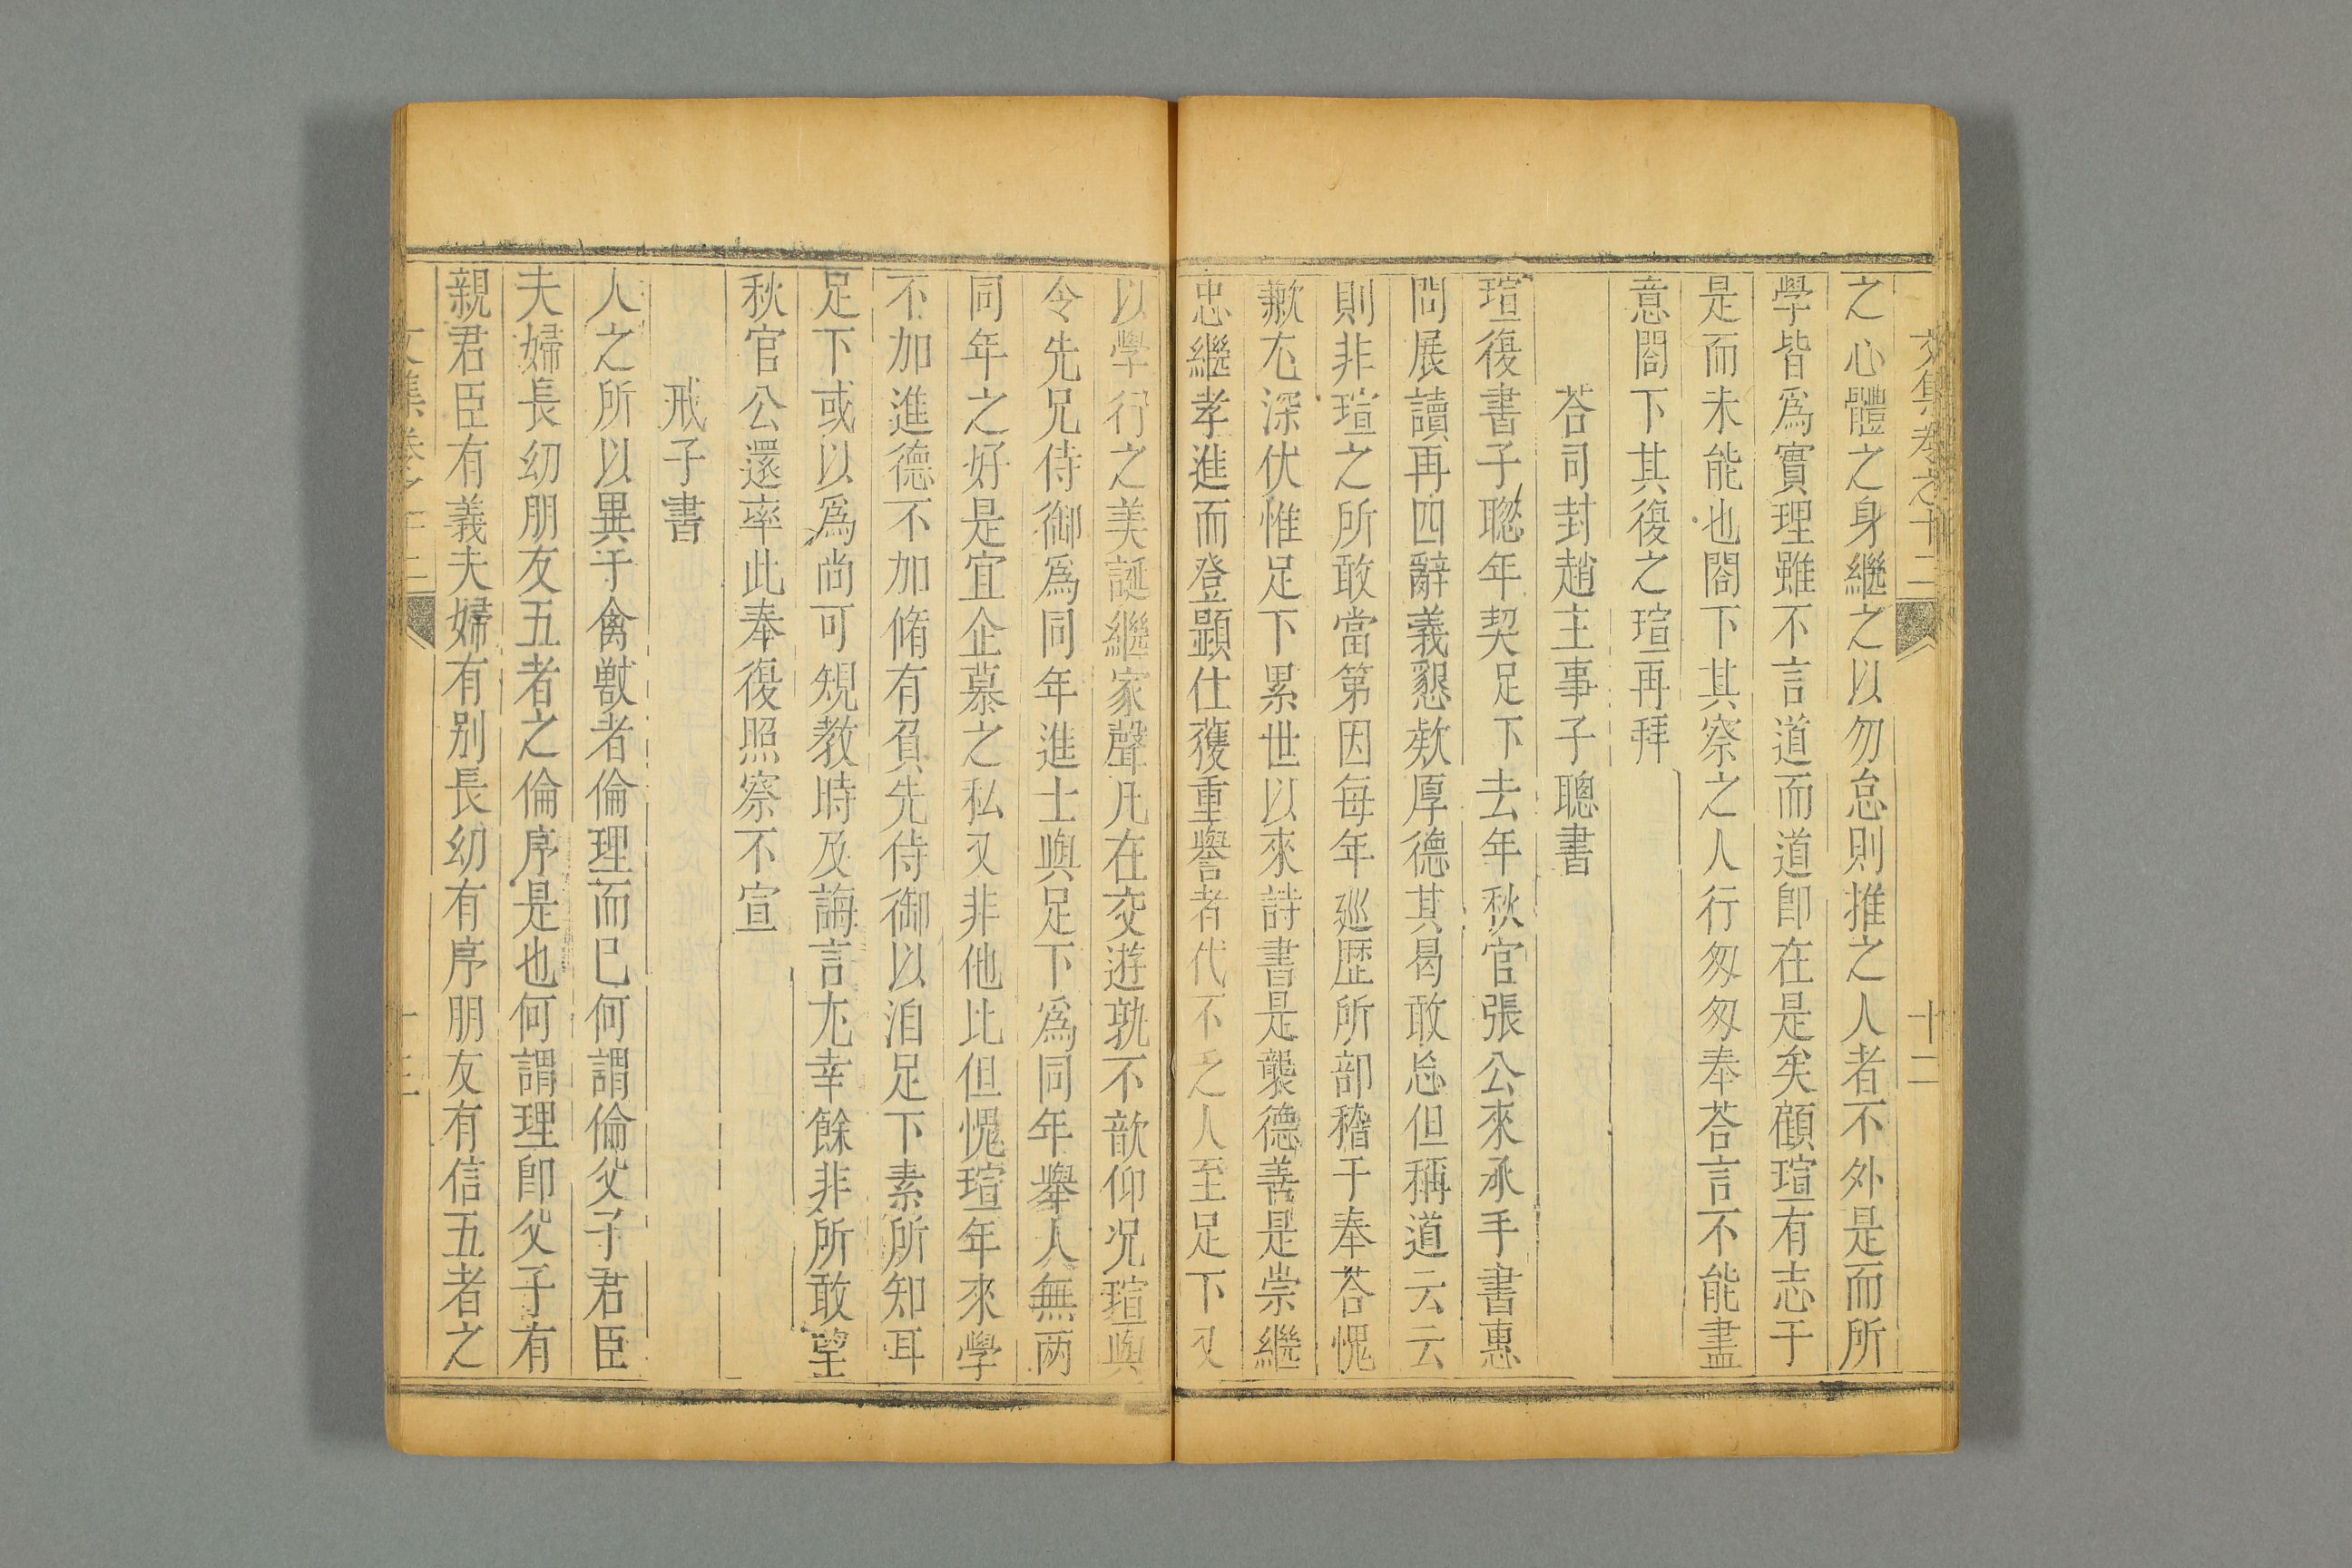 文集卷之十二
十二
之心體之身繼之以勿怠則推之人者不外是而所
學皆爲實理雖不言道而道卽在是矣顧瑄有志于
是而未能也閤下其察之人行匆匆奉荅言不能盡
意閤下其復之瑄再拜
荅司封趙主事子聰書
瑄復書子聦年契足下去年秋官張公來承手書惠
問展讀再四辭義懇欵厚德其曷敢忘但稱道云云
則非瑄之所敢當第因每年廵歴所部稽于奉荅愧
歉尤深伏惟足下累世以來詩書是襲德善是崇繼
忠繼孝進而登顯仕獲重譽者代不乏人至足下又
以學行之美誕繼家聲凡在交遊孰不歆仰况瑄與
令先兄侍御爲同年進士與足下爲同年舉人無兩
同年之好是宜企慕之私又非他比但愧瑄年來學
不加進德不加脩有負先侍御以洎足下素所知耳
足下或以爲尚可規教時及誨言尤幸餘非所敢望
秋官公還率此奉復照察不宣
戒子書
人之所以異于禽獸者倫理而已何謂倫父子君臣
夫婦長幼朋友五者之倫序是也何謂理卽父子有
親君臣有義夫婦有别長幼有序朋友有信五者之
文集卷之十二
十三